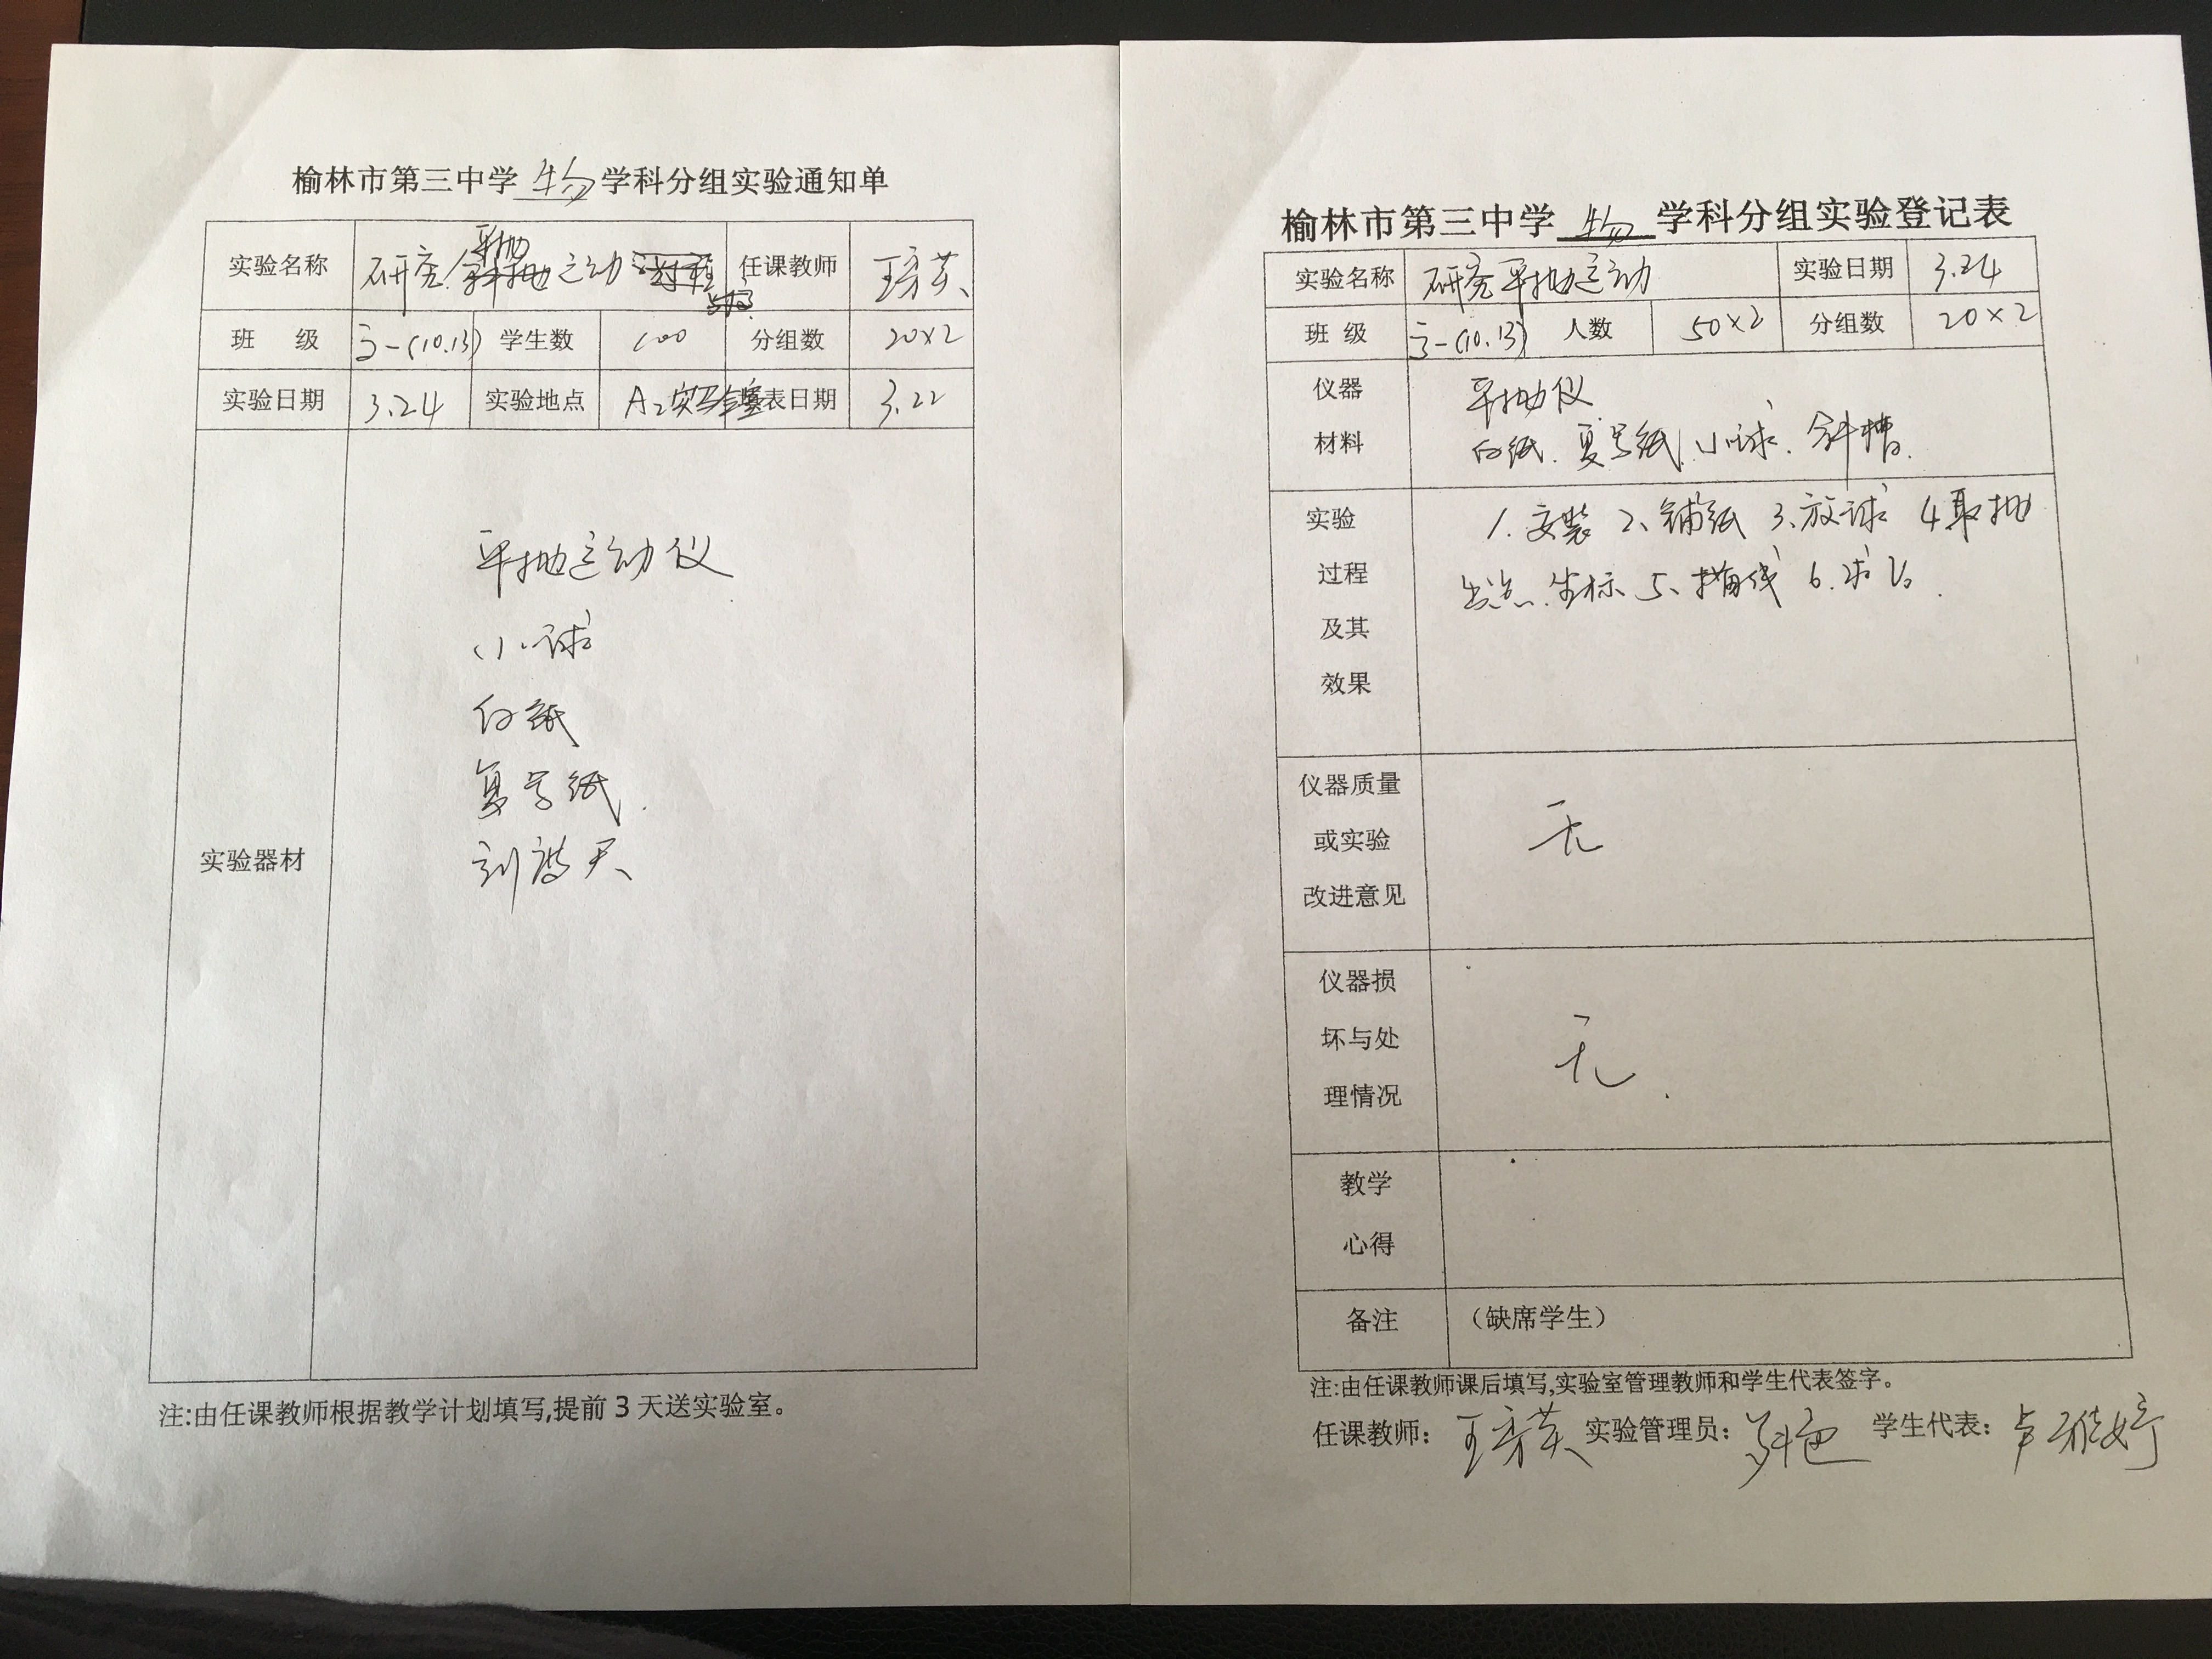 榆林市第三中学 生物 学科分组实验通知单
实验名称 研究平抛运动 任课教师 王芳英
班 级 高一(10.13) 学生数 100 分组数 20×2
实验日期 3.24 实验地点 A2实验室 填表日期 3.22
实验器材
平抛运动仪
小球
白纸
复写纸.
刻度尺、
注:由任课教师根据教学计划填写,提前3天送实验室。
榆林市第三中学 生物 学科分组实验登记表
实验名称 研究平抛运动 实验日期 3.24
班 级 高一(10.13) 人数 50×2 分组数 20×2
仪器 平抛仪
材料 白纸.复写纸.小球.斜槽.
实验 1.安装 2、铺纸 3、放球 4取抛
过程 出点.坐标、5、描线 6.求V₀.
及其
效果
仪器质量
或实验 无
改进意见
仪器损
坏与处 无.
理情况
教学
心得
备注 (缺席学生)
注:由任课教师课后填写,实验室管理教师和学生代表签字。
任课教师: 王芳英 实验管理员: 学生代表: 卢雅婷